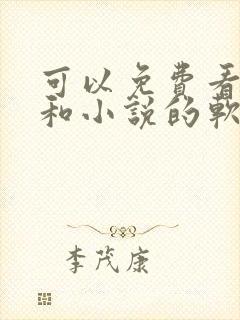 可以免費看
和小說的軟
李茂康